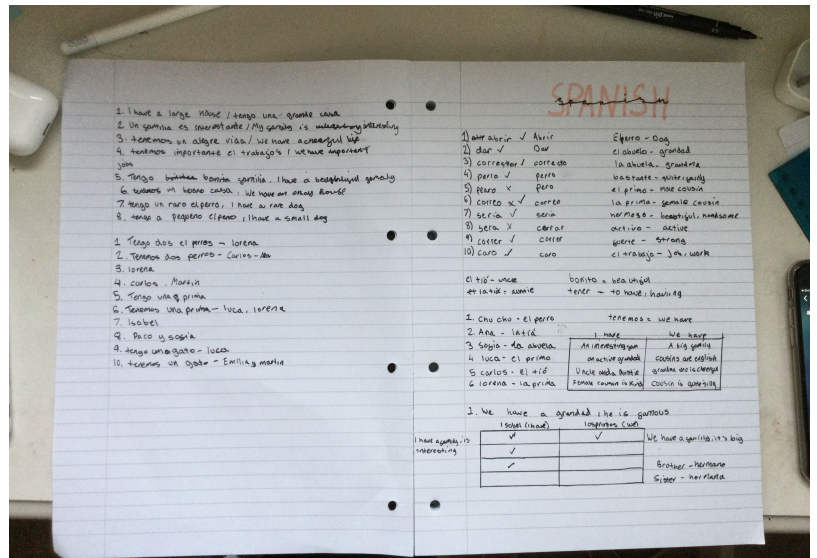 1. I have a large house / tengo una grande casa
2. Un familia es interestante / My family is interesting
3. tenemos un alegre vida / We have a cheerful life
4. tenemos importante el trabajo's / we have important
jobs
5. Tengo bonita familia. I have a beautiful family
6. tenemos un bueno casa, We have an okay house
7. tengo un raro el perro, I have a rare dog
8. tengo a pequeno el perro, I have a small dog
1 Tengo dos el perros - lorena
2. Tenemos dos perros - Carlos
3. lorena
4. carlos. Martin
5. Tengo una prima
6. Tenemos una prima - luca, lorena
7. Isobel
8. Paco y sofia
9. tengo un gato - luca
10. tenemos un gato - Emilia y martin
SPANISH
spanish
1) abrir ✓ Abrir
2) dar ✓ Dar
3) corrector / correcto
4) perro ✓ perro
5) pearo x pero
6) correo x ✓ correo
7) seria ✓ seria
8) sera x cerrar
9) correr ✓ correr
10) caro ✓ caro
El perro - Dog
el abuelo - grandad
la abuela - grandma
bastante - quite/fairly
el primo - male cousin
la prima - female cousin
hermoso - beautiful, handsome
activo - active
fuerte - strong
el trabajo - Job, work
el tió - uncle
la tiá = auntie
bonito = beautiful
tener - to have, having
1. Chu chu - el perro
2. Ana - la tiá
3 Sofia - la abuela
4 luca - el primo
5 carlos - el tió
6 lorena - la prima
tenemos = we have
I have
We have
An interesting fam
A big family
an active grandad
cousins are english
Uncle and a Auntie
grandma who is cheerful
Female cousin is kind
Cousin is quite fine
1. We have a grandad, he is famous
Isobel (I have)
los primos (we)
I have a family, is
interesting
We have a family, it's big
Brother - hermano
Sister - hermana